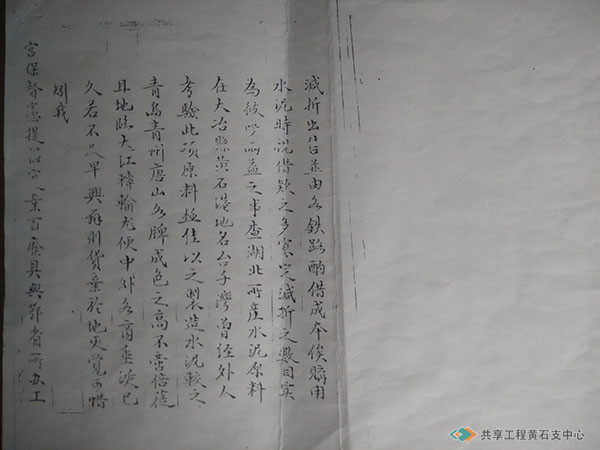 減折出售並由各鉄路酌借成本俟購用
水泥時視借款之多寡定減折之數目實
為彼此兩益之事查湖北所產水泥原料
在大冶縣黄石港地名台子灣曾經外人
考驗此項原料極佳以之製造水泥較之
青島青州唐山各牌成色之高不啻倍蓰
且地臨大江轉輸尤便中外各商垂涎已
久若不及早興辦則貨棄於地更覺可惜
我
宮保督憲提倡實業百廢具興鄂省所办工
共享工程黄石支中心